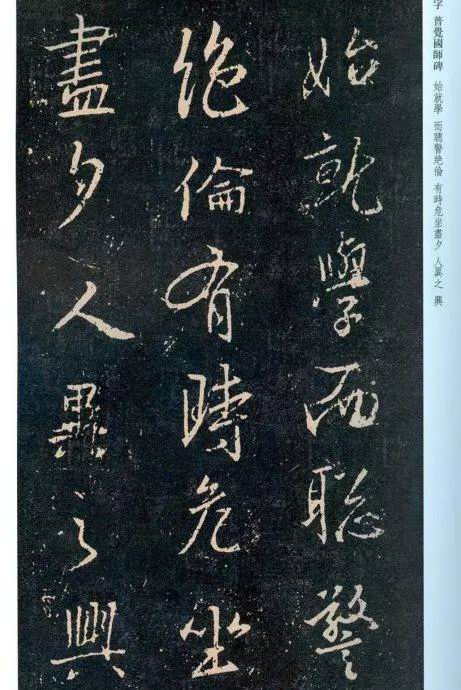 始就學而聡警
絶倫有時危坐
盡夕人異之興
字 普覺國師碑 始就學 而聰警絶倫 有時危坐盡夕 人異之 興